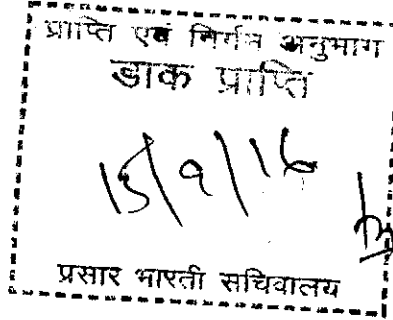 प्राप्ति एवं निर्गम अनुभाग
डाक प्राप्ति
15/9/16
प्रसार भारती सचिवालय